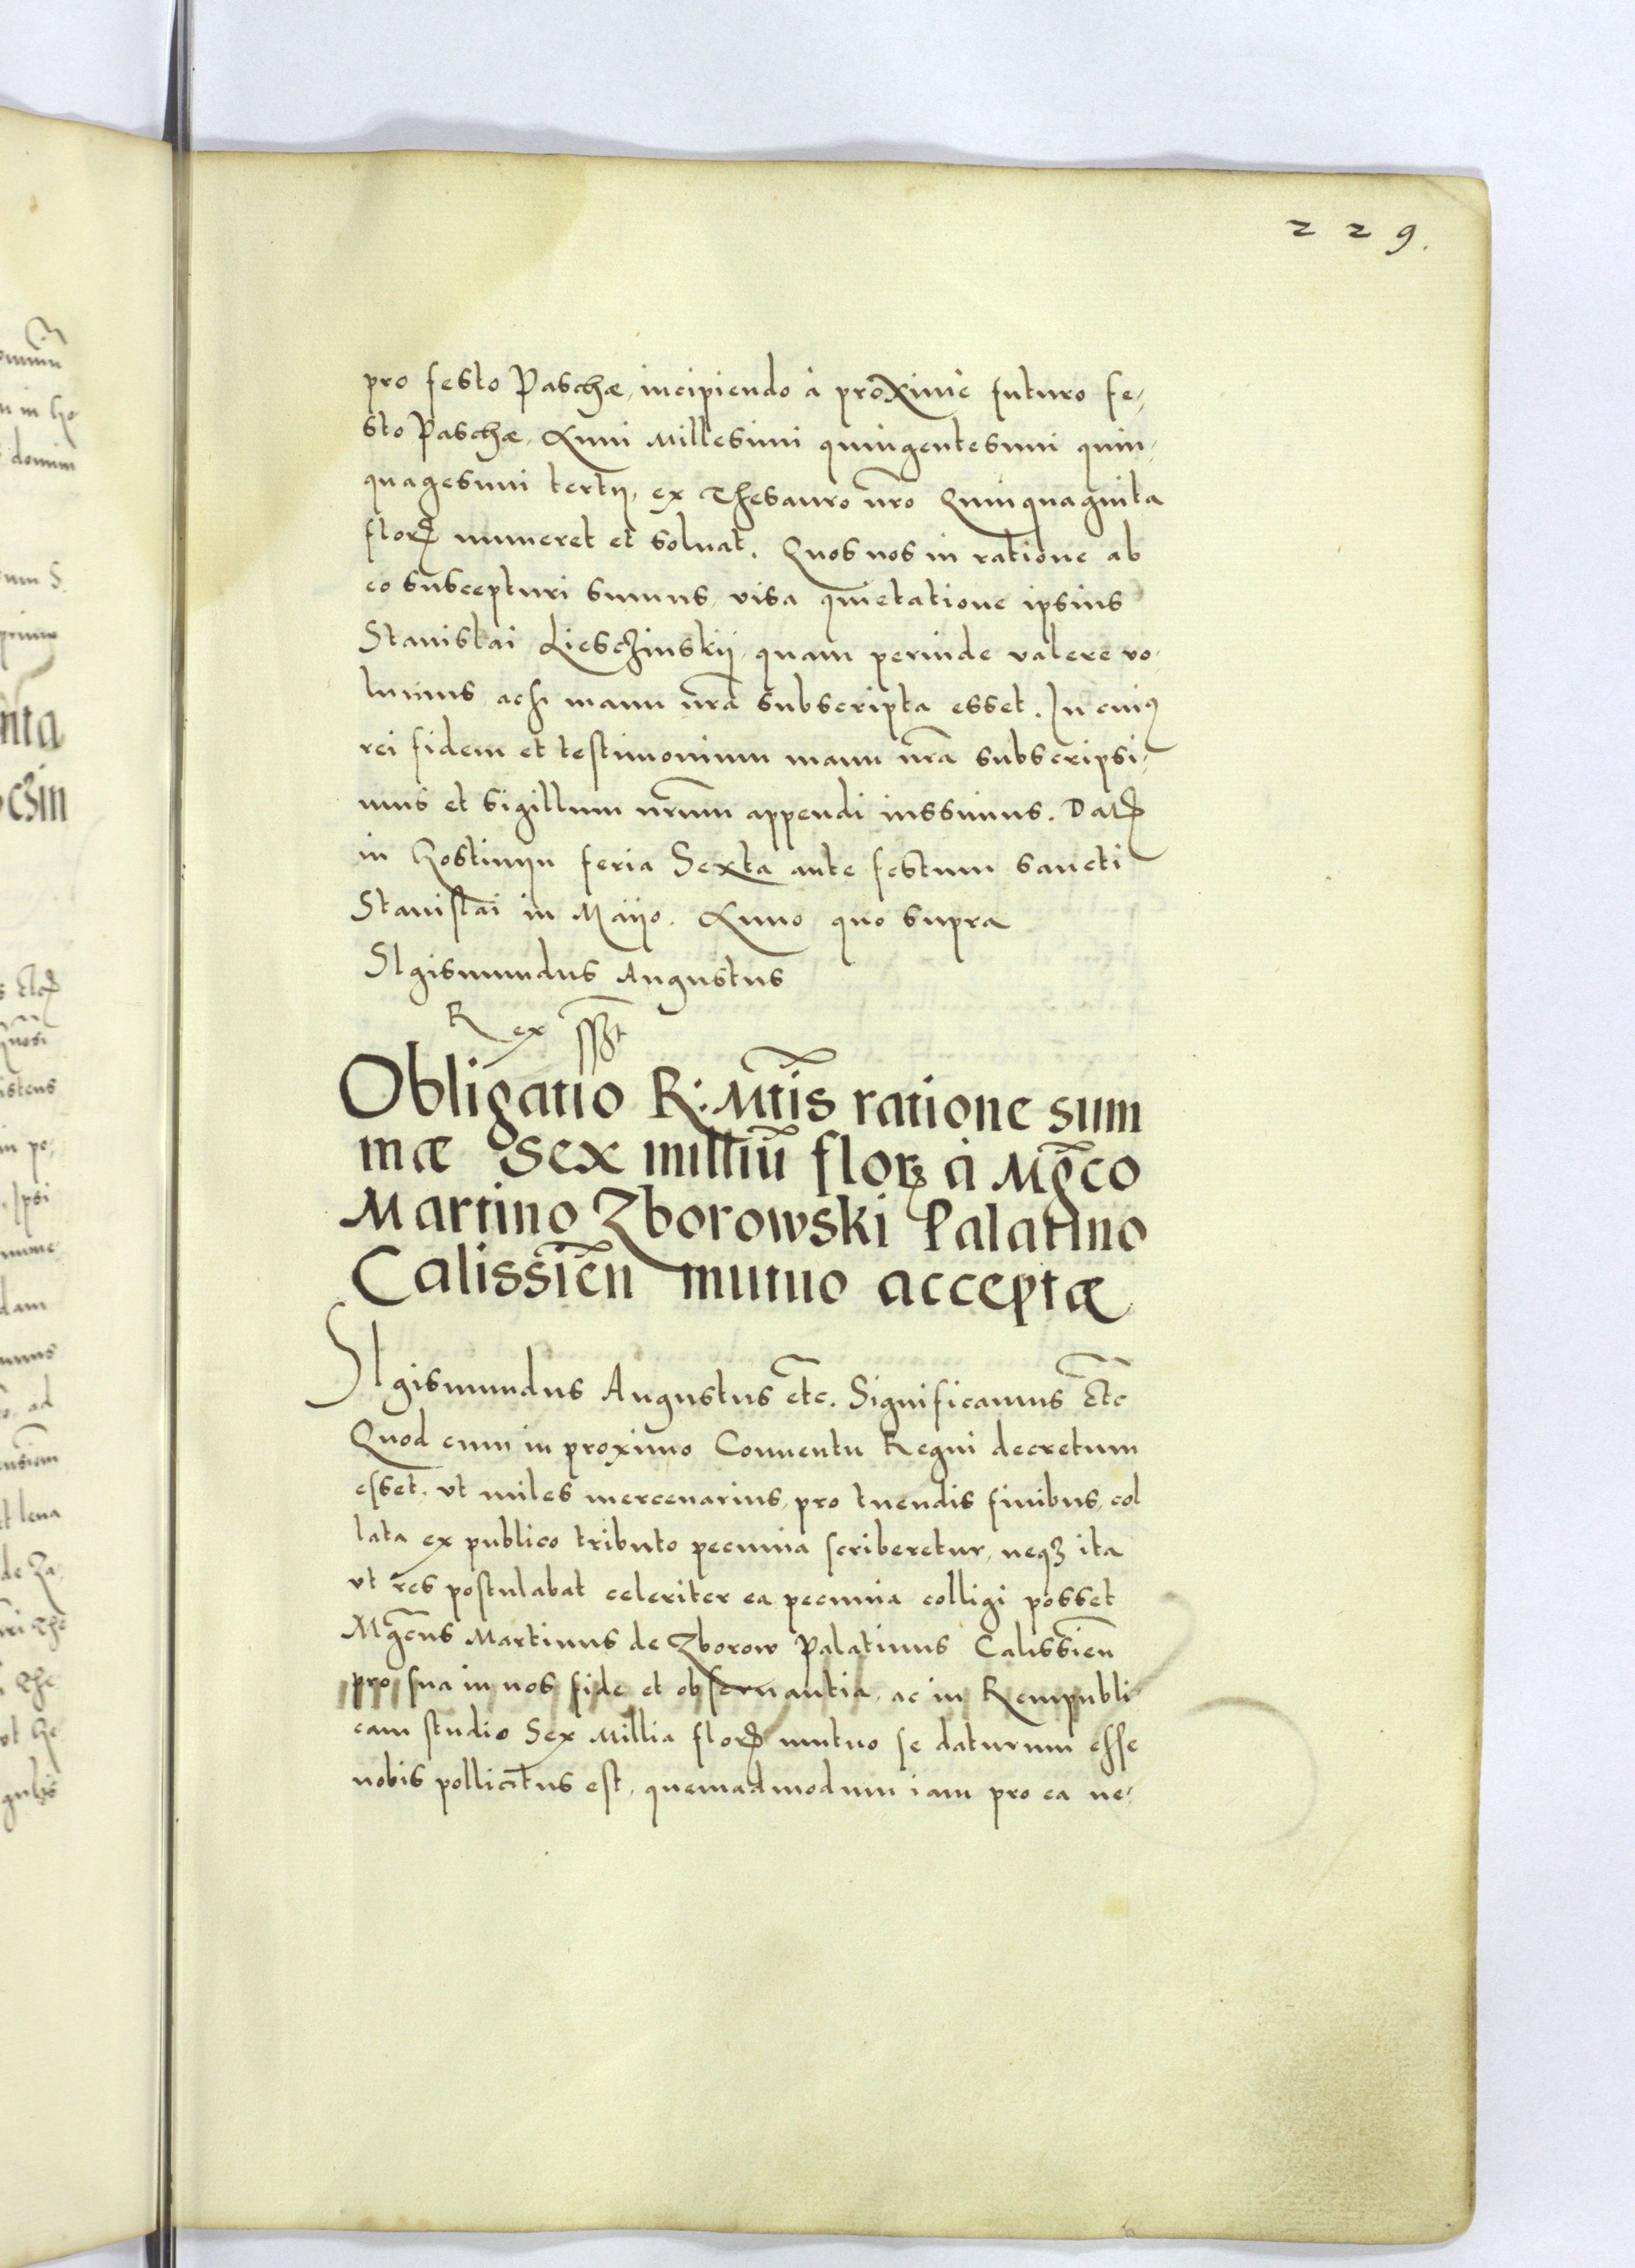 229.
pro festo Paschæ, incipiendo à proximè futuro fe,
sto Paschæ, Anni Millesimi quingentesimi quin,
quagesimi tertij, ex Thesauro nro Quinquaginta
flor numeret et soluat. Quos nos in ratione ab
eo suscepturi sumus, visa quietatione ipsius
Stanislai Liesczinskij, quam perinde valere vo,
lumus, acsi manu nra subscripta esset. In cuiꝰ
rei fidem et testimonium manu nra subscripsi,
mus et sigillum nrum appendi iussimus. Dat
in Gostinijn feria Sexta ante festum sancti
Stanislai in Maijo. Anno quo supra
SIgismundus Augustus
Rex sspt
Obligatio R: Mtis ratione sum
mæ Sex milliū florꝝ à Mgco
Martino Zborowski Palatino
Calissien mutuo acceptæ
SIgismundus Augustus etc. Significamus Etc
Quod cum in proximo Conuentu Regni decretum
esset, vt miles mercenarius, pro tuendis finibus, col
lata ex publico tributo pecunia scriberetur, neqꝫ ita
vt res postulabat celeriter ea pecunia colligi posset
Mgcus Martinus de Zborow Palatinus Calissien
pro sua in nos fide et obseruantia, ac in Rempubli
cam studio Sex Millia flor mutuo se daturum esse
nobis pollicitus est, quemadmodum iam pro ea ne,